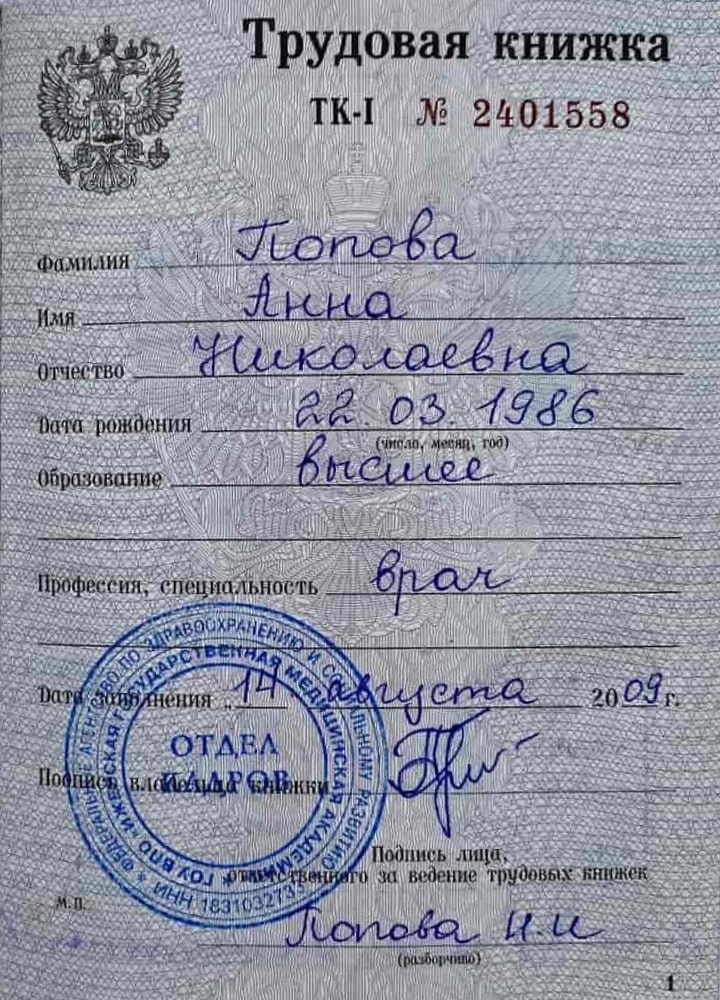 Трудовая книжка
ТК-I № 2401558
Фамилия Попова
Имя Анна
Отчество Николаевна
Дата рождения 22.03.1986
(число, месяц, год)
Образование высшее
Профессия, специальность врач
Дата заполнения „14 августа 2009 г.
Подпись владельца книжки
Подпись лица,
ответственного за ведение трудовых книжек
М.П.
Попова Н.И
(разборчиво)
1
ФЕДЕРАЛЬНОЕ АГЕНТСТВО ПО ЗДРАВООХРАНЕНИЮ И СОЦИАЛЬНОМУ РАЗВИТИЮ
ГОУ ВПО ИЖЕВСКАЯ ГОСУДАРСТВЕННАЯ МЕДИЦИНСКАЯ АКАДЕМИЯ
ИНН 1831032733
ОТДЕЛ
КАДРОВ